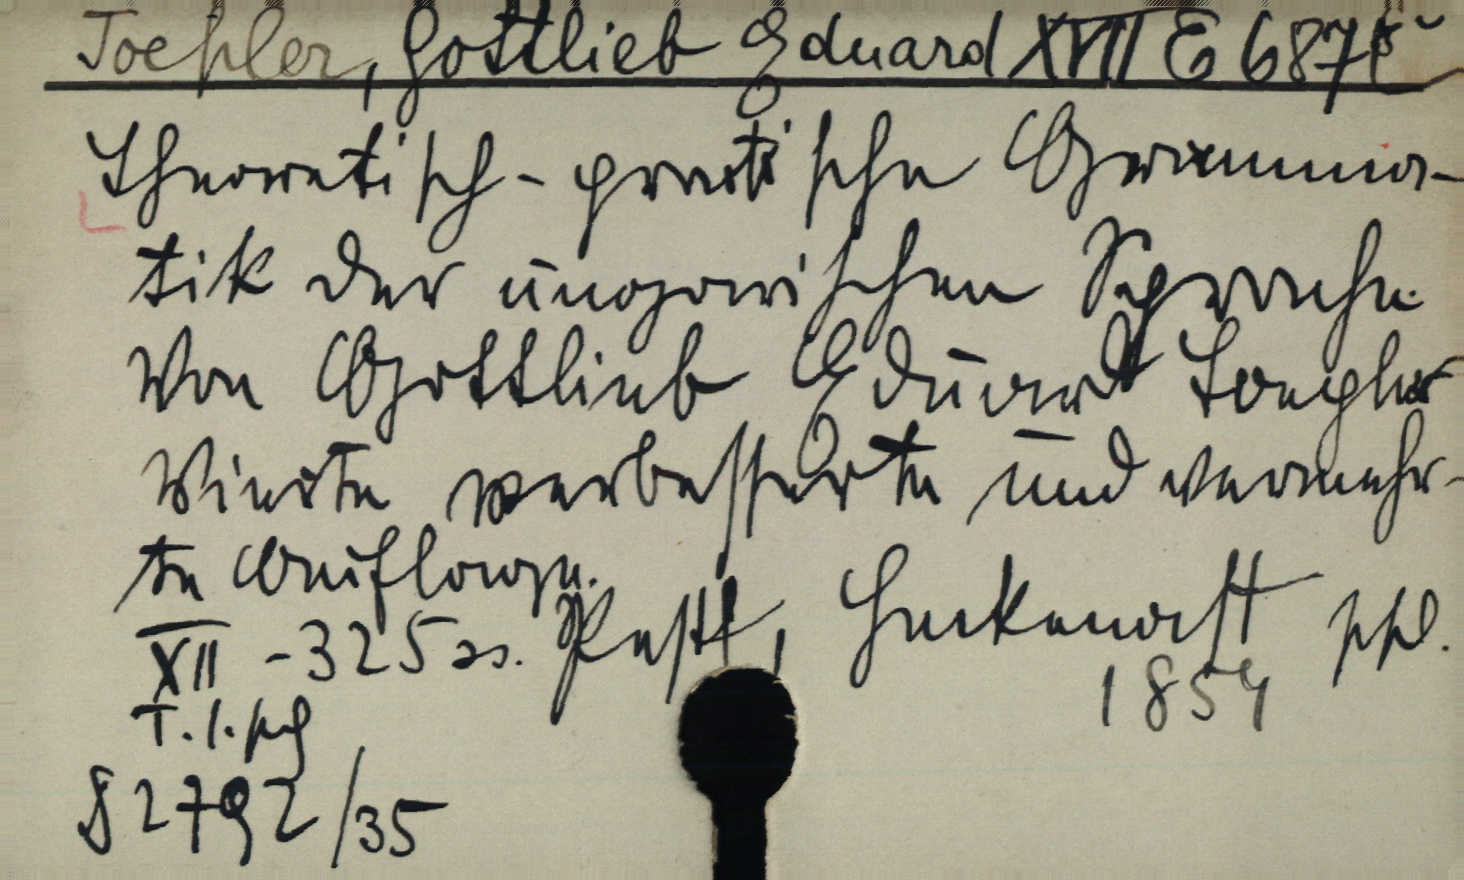 Toepler, Gottlieb Eduard XVIII E 6875
Theoretisch-practische Gramma-
tik der ungarischen Sprache.
Von Gottlieb Eduard Toepler
Vierte verbesserte und vermehr-
te Auflage.
XII - 325 ss. Pest, Heckenast
1854
82792/35